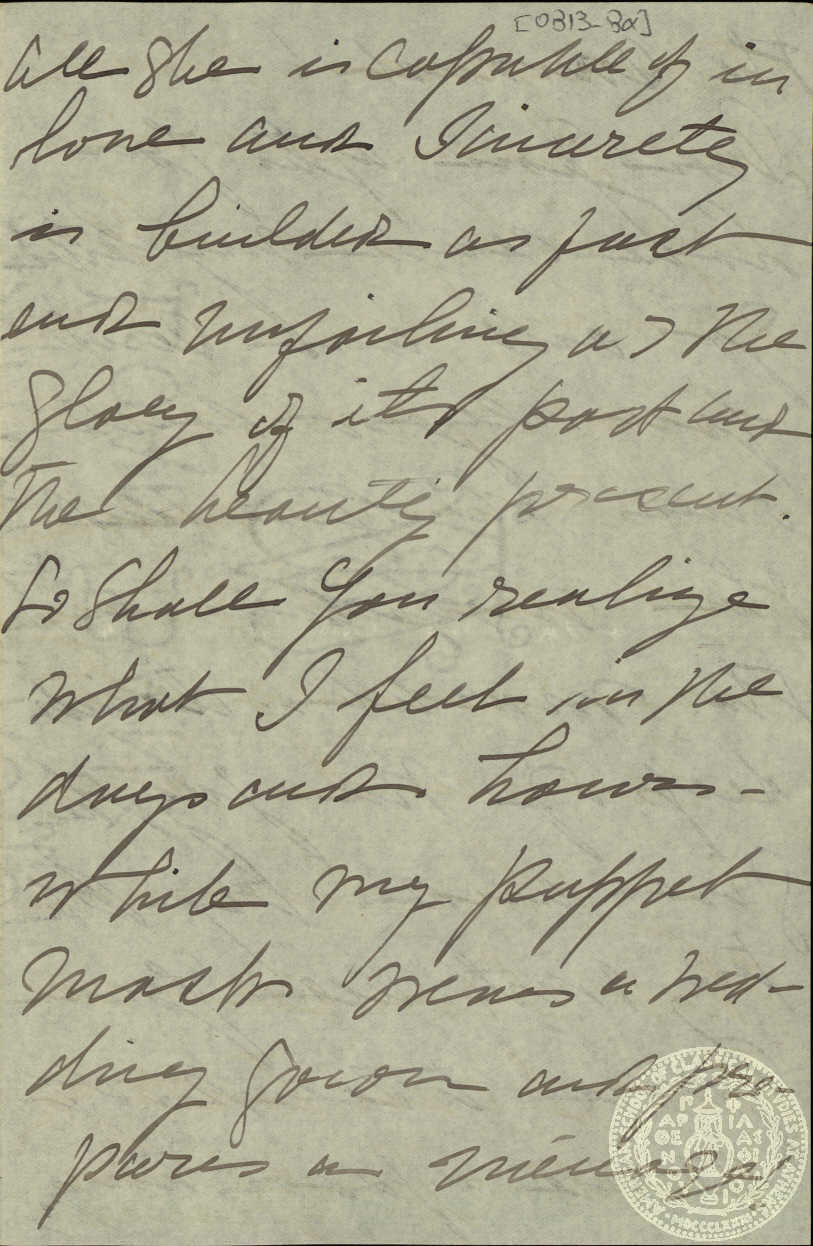 [0313-8α]
all she is capable of in
love and Sincerety
is builded as fast
and unfailing as the
glory of its past and
the beauty present.
So shall you realize
what I feel in the
days and hours -
while my puppet
mask wears a wed-
ding gown and pre-
pares a ménage